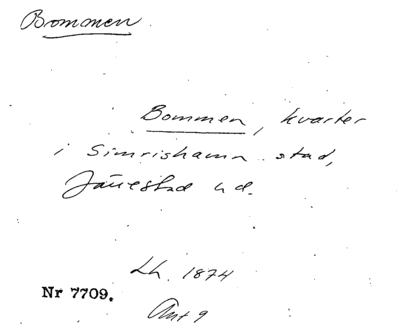 Bommen
Bommen, kvarter
i Simrishamn stad,
Järrestad hd.
Lh. 1874
Nr 7709.
Ant 9